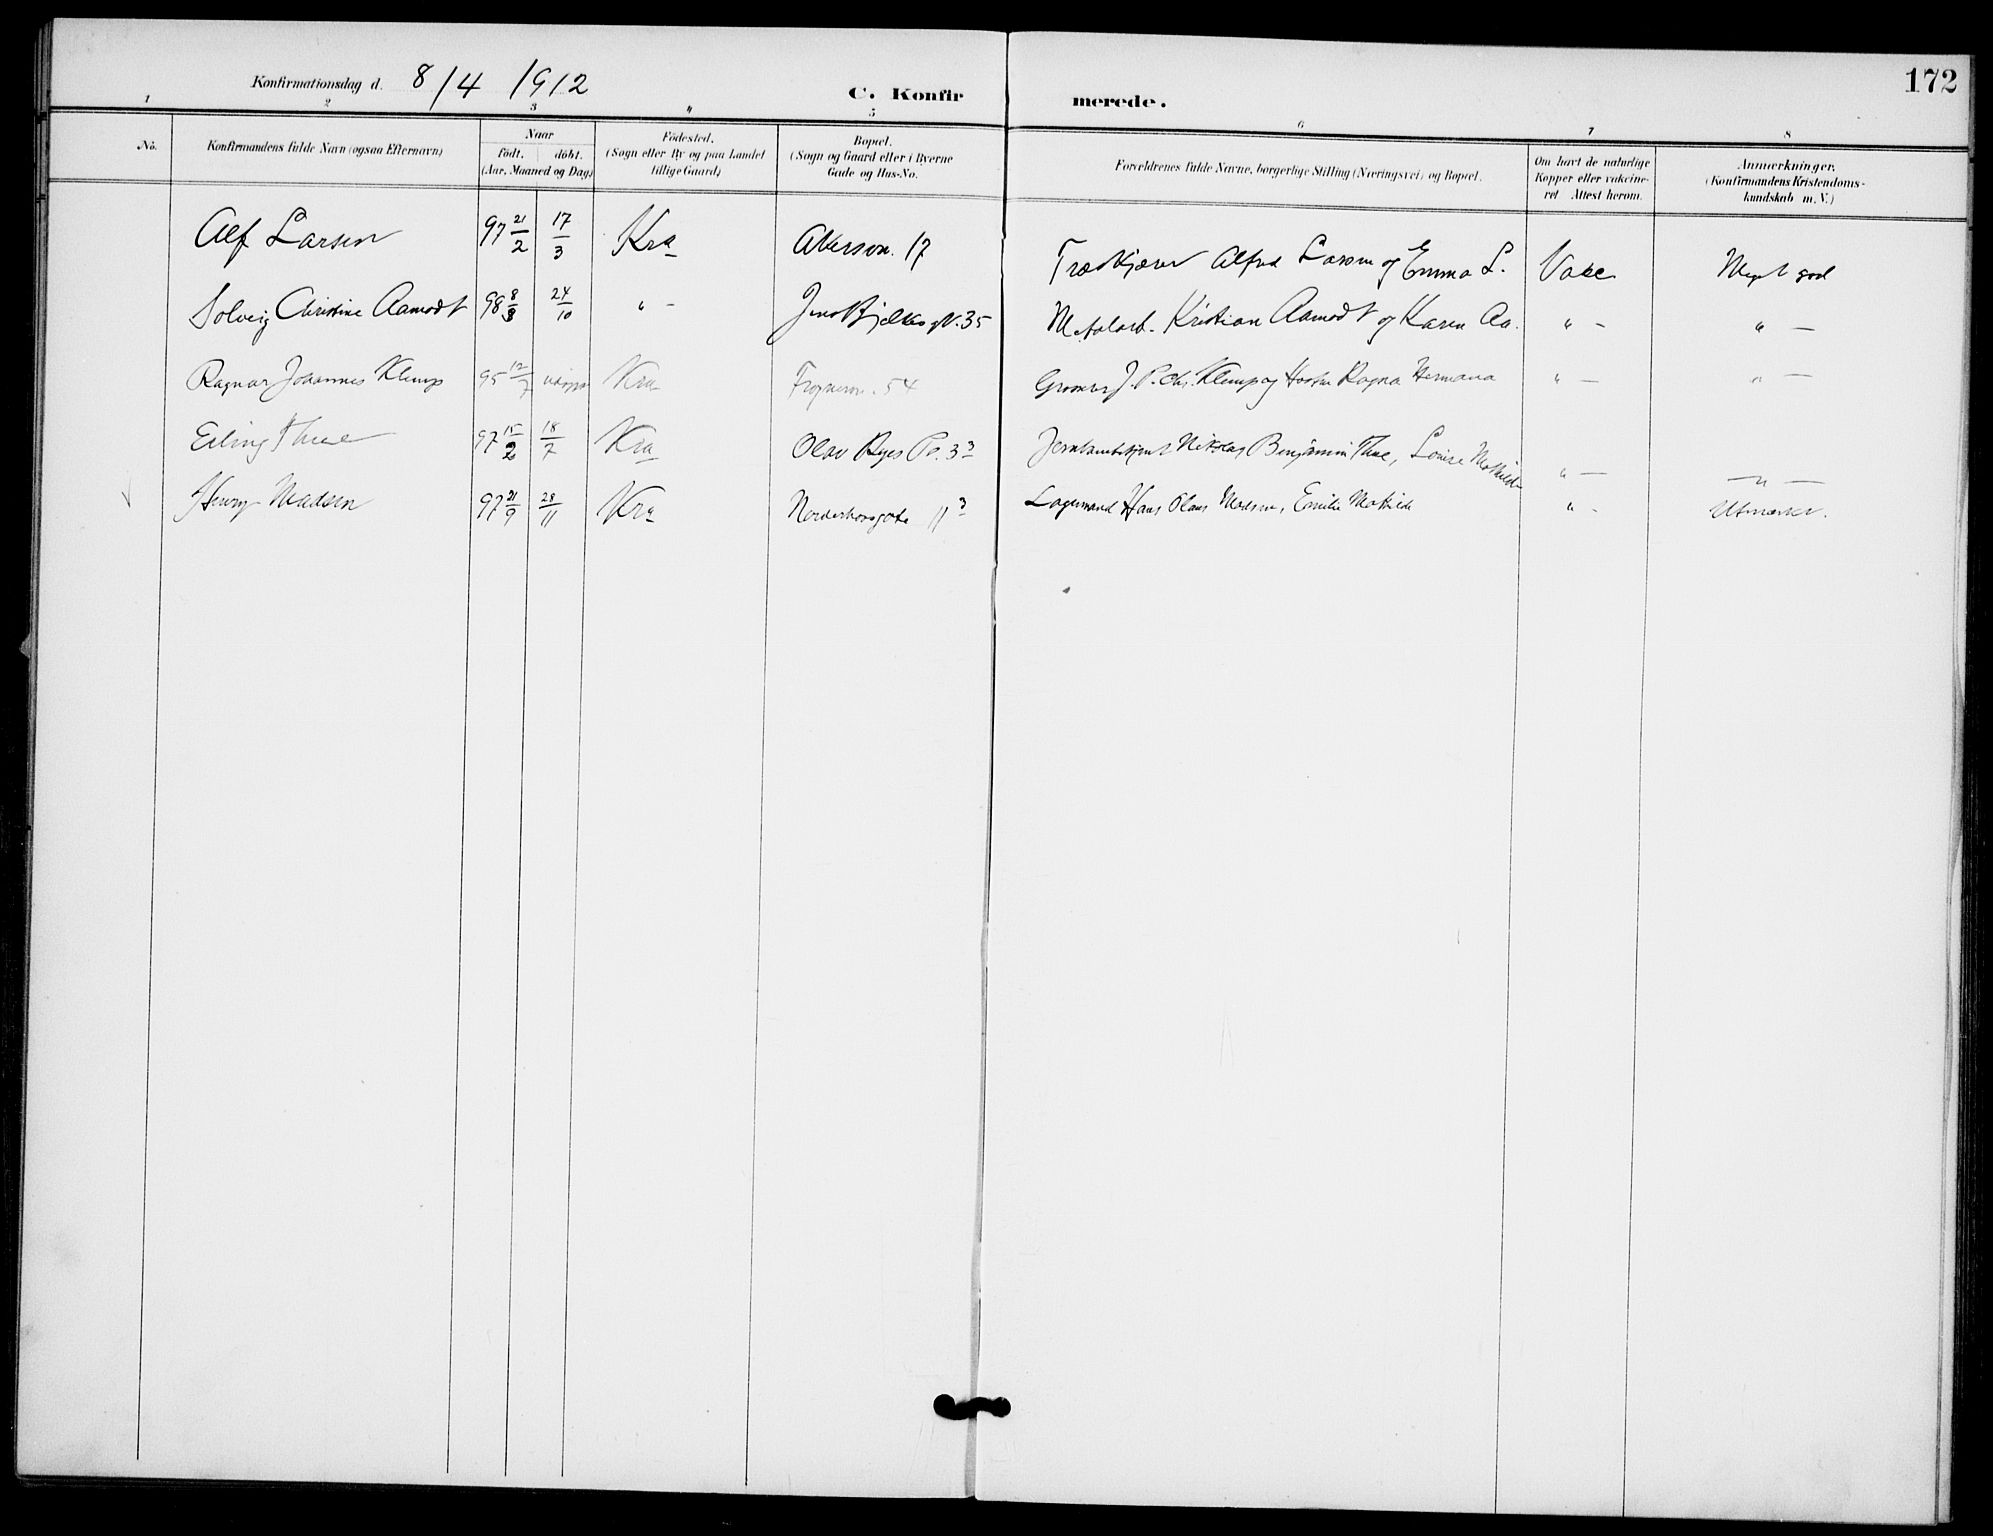 172
Konfirmationsdag d. 8/4 1912
C. Konfirmerede.
1 2 3 " 5 6 7 8
No.
Konfirmandens fulde Navn (ogsaa Efternavn)
Naar
födt. döbt.
(Aar, Maaned og Dag)
Födested.
(Sogn eller By og paa Landet
tillige Gaard)
Bopæl.
(Sogn og Gaard eller i Byerne
Gade og Hus-No.
Forældrenes fulde Navne, borgerlige Stilling (Næringsvei) og Bopæl.
Om havt de naturlige
Kopper eller vakcine-
ret Attest herom.
Anmærkninger.
(Konfirmandens Kristendoms-
kundskab m. V.)
Alf Larsen 97 21/2 17/3 Kra Akersvn. 17 Alfred Larsen og Emma L. Vakc Meget god
Solveig Christine Aamodt 98 8/8 24/10 " - Jens Bjelkes gt. 35 Metalarb. Kristian Aamodt og Karen Aa. " - " -
Ragnar Johannes Klemp 95 12/7 Kra Frognervn. 54 J. P. Chr. Klemp og Hustru Ragna Hermana " - " -
Erling Thue 97 15/2 18/7 Kra Olav Ryes Pl. 3 3 Nikolay Benjamin Thue, Louise Mathilde " - - " -
Henry Madsen 97 21/9 28/11 Kra Norderhovsgate 11 3 Lagermand Hans Olaus Madsen, Emilie Mathilde " - Utmerket.